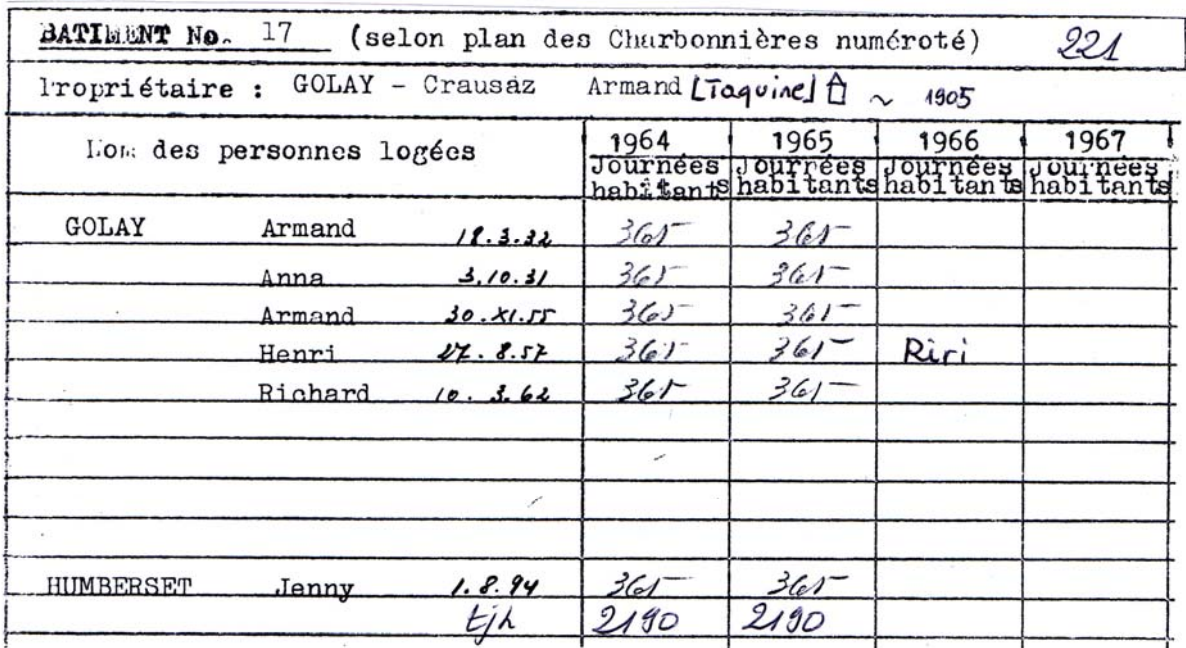 BATIMENT No. 17 (selon plan des Charbonnières numéroté) 221
Propriétaire : GOLAY - Crausaz Armand [Taquine] ~ 1905
Nom des personnes logées 1964 Journées habitants 1965 Journées habitants 1966 Journées habitants 1967 Journées habitants
GOLAY Armand 18.3.32 365 365
Anna 3.10.31 365 365
Armand 30.XI.55 365 365
Henri 27.8.57 365 365 Riri
Richard 10.3.62 365 365
HUMBERSET Jenny 1.8.94 365 365
tjh 2190 2190